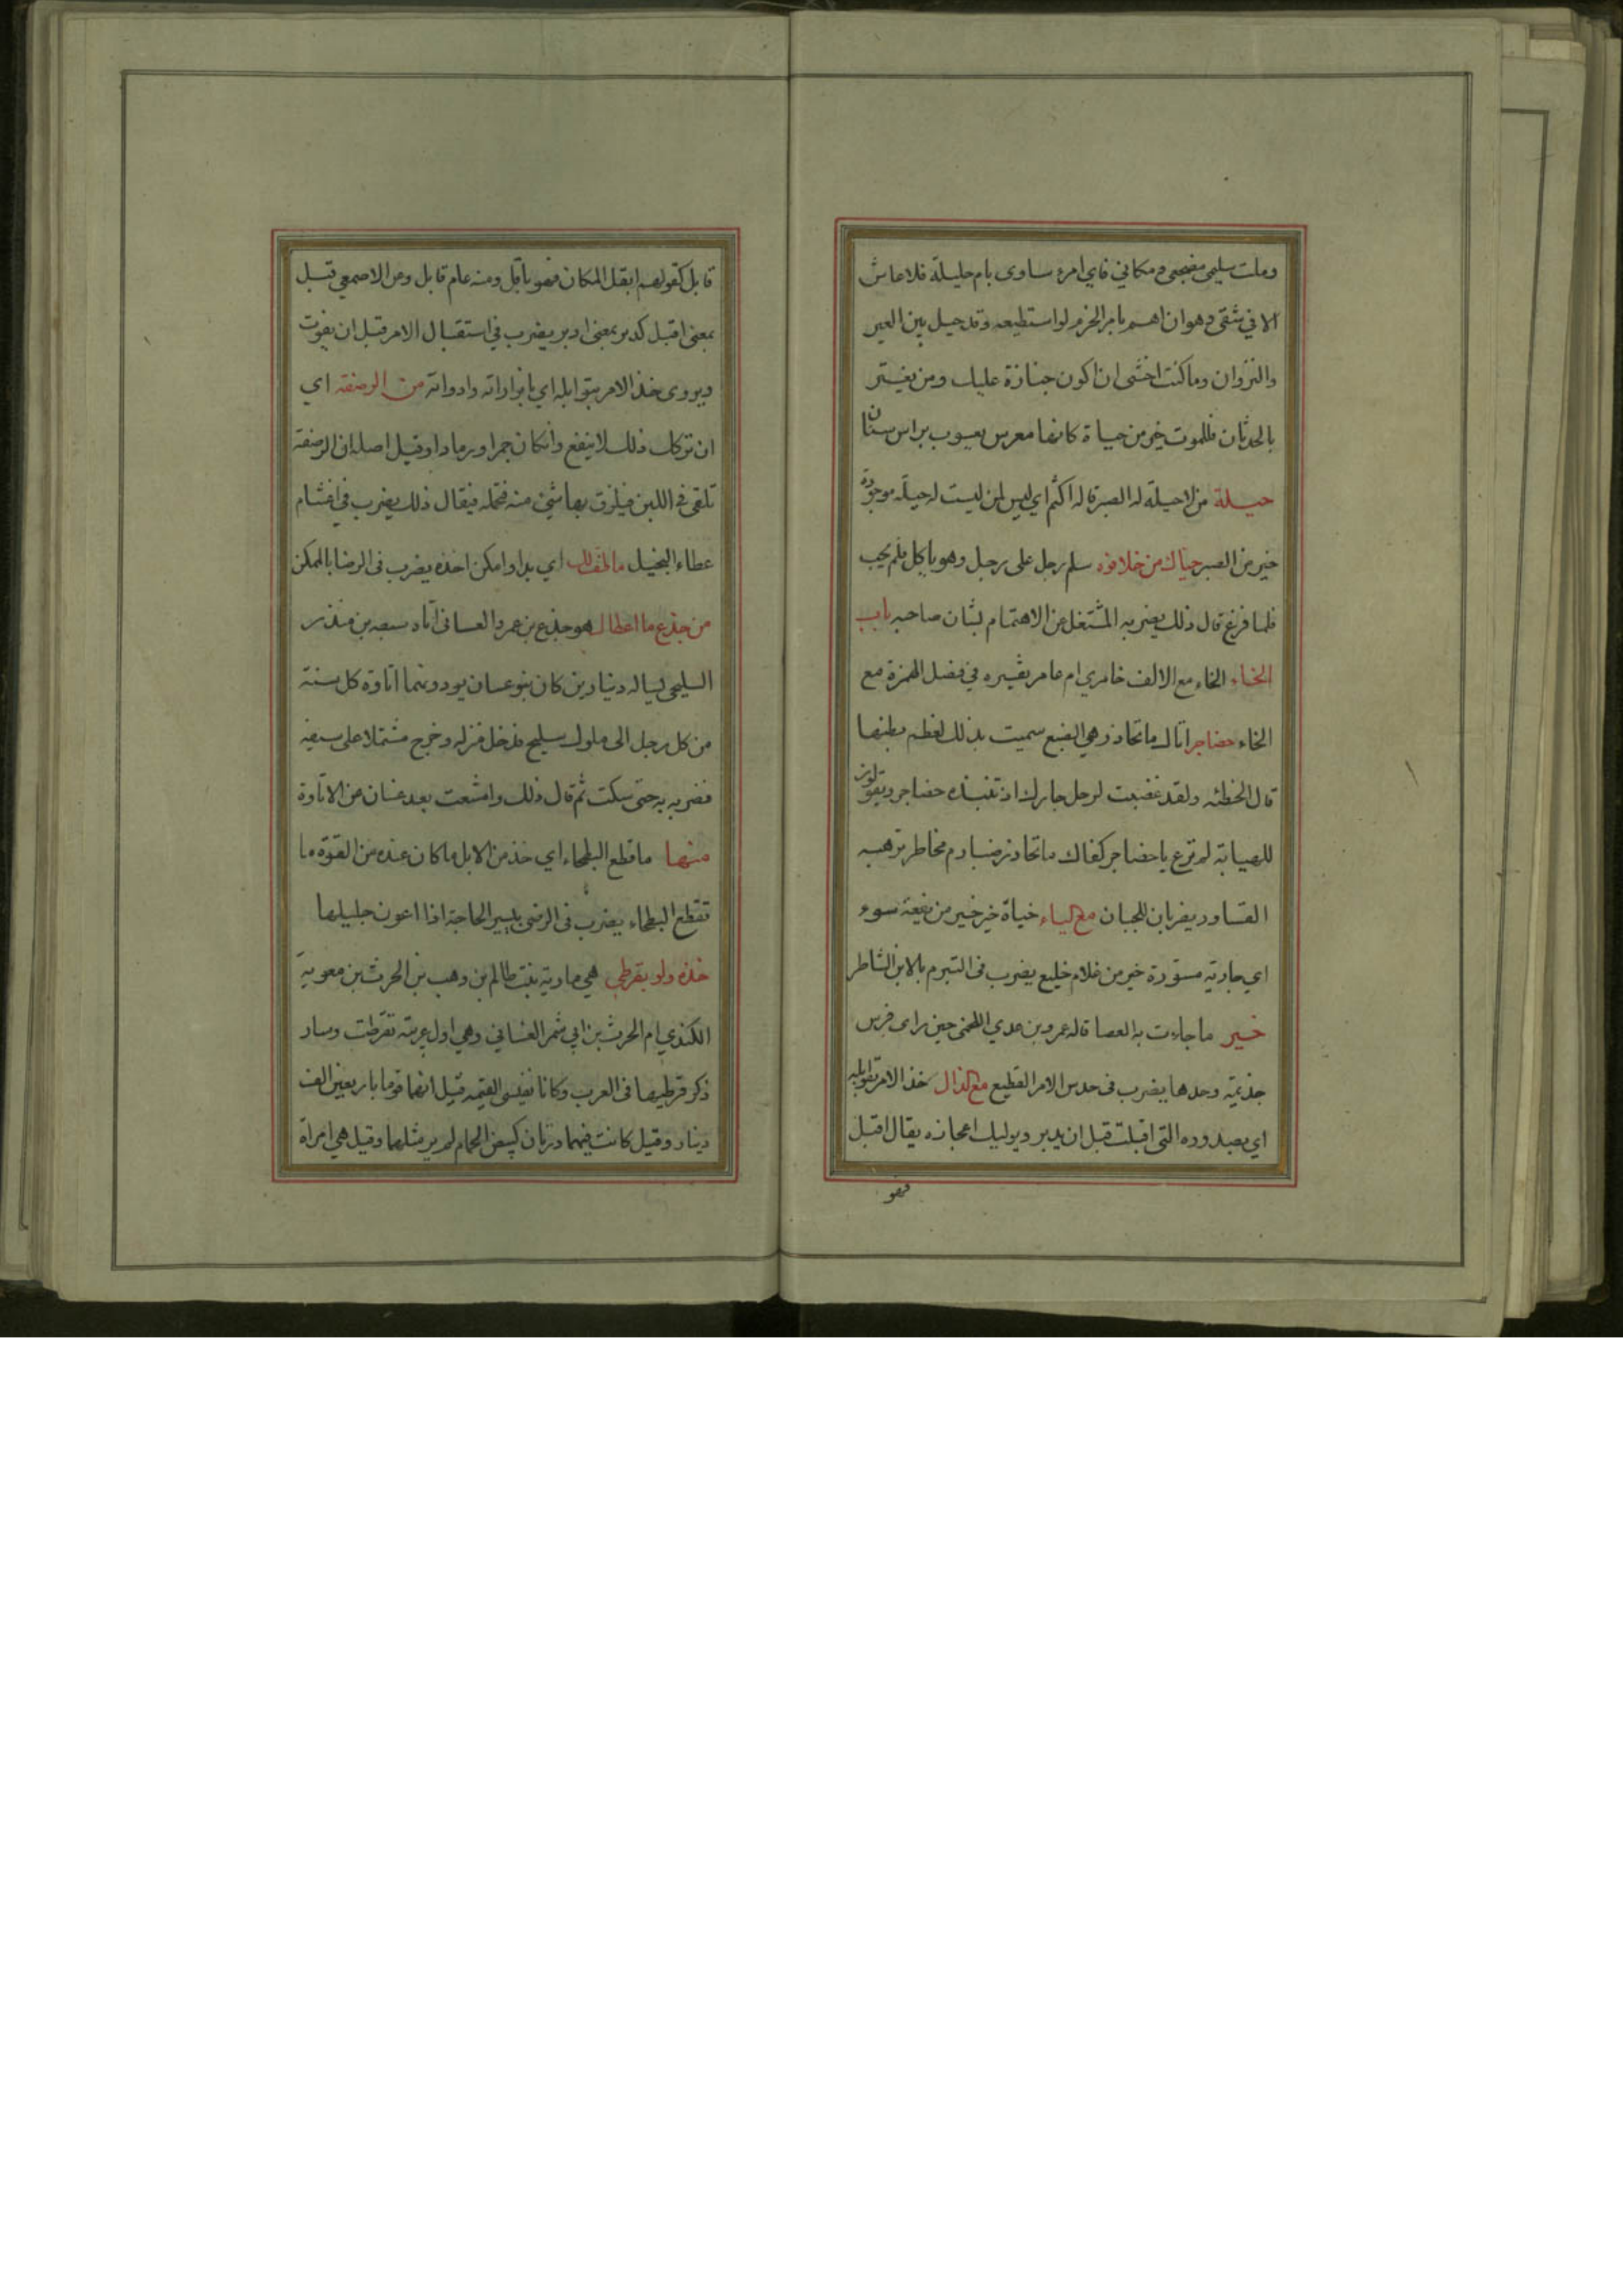 وملت سليمى مضجعي ومكاني فاي امرء ساوى بام حليلة فلا عاش
الا في شقى وهوان اهم بامر الحزم لو استطيعه وقد حيل بين العير
والنزوان وما كنت اخشى ان اكون جنازة عليك ومن يغتر
بالحدثان فللموت خير من حياة كانها معرس يعسوب براس سنان
حيلة من لا حيلة له الصبر قاله اكثم اي ليس لمن ليست له حيلة موجودة
خير من الصبر حياك من خلا فوه سلم رجل على رجل وهو ياكل فلم يجب
فلما فرغ قال ذلك يضربه المشتغل عن الاهتمام بشان صاحبه باب
الخاء الخاء مع الالف خامري ام عامر تفسيره في فصل الهمزة مع
الخاء حضاجر اتاك ما تحاذر هي الضبع سميت بذلك لعظم بطنها
قال الحطئه ولقد غضبت لرحل جارك اذ تنبذه حضاجر ويقولون
للصيابة لم ترع يا حضاجر كفاك ما تحاذر ضبارم مخاطر ترهبه
القساور يضربان للجبان مع الياء خباة خير خير من يفعة سوء
اي جارية مستورة خير من غلام خليع يضرب في التبرم بالابن الشاطر
خير ما جاءت به العصا قاله عمرو بن عدي اللخمي حين راى فرس
جذيمة وحدها يضرب في حدس الامر الفظيع مع الذال خذ الامر بقوابله
اي بصدوره التي اقبلت قبل ان يدبر ويوليك اعجازه يقال اقبل
فهو
قابل كقولهم ابقل المكان فهو باقل ومنه عام قابل وعن الاصمعي قبل
بمعنى اقبل كدبر بمعنى ادبر يضرب في استقبال الامر قبل ان يفوت
ويروى خذ الامر بتوابله اي بابزاراته وادواته من الرضفة اي
ان تركك ذلك لا ينفع وان كان جمرا ورمادا وقيل اصله ان الرضفة
تلقى في اللبن فيلزق بها شئ منه فتحمله فيقال ذلك يضرب في اغتنام
عطاء البخيل ما طف لك اي بدا وامكن اخذه يضرب في الرضا بالممكن
من جذع ما اعطاك هو جذع بن عمرو الغساني اتاه سبطه بن منذر
السليحي يساله دينارين كان بنو غسان يودونهما اتاوة كل سنة
من كل رجل الى ملوك سليح فدخل منزله وخرج مشتملا على سيفه
فضربه به حتى سكت ثم قال ذلك وامتنعت بعد غسان عن الاتاوة
منها ما قطع البطحاء اي خذ من الابل ما كان عنده من القوة ما
تقطع البطحاء يضرب في الرضى بيسير الحاجة اذا اعون جليلها
خذه ولو بقرطي هي مارية بنت ظالم بن وهب بن الحرث بن معوية
الكندي ام الحرث بن ابي شمر الغساني وهي اول عربية تقرطت وسار
ذكر قرطيها في العرب وكانا نفيسي القيمة قيل انهما قوما باربعين الف
دينار وقيل كانت فيهما درتان كبيض الحمام لم ير مثلهما وقيل هي امراة